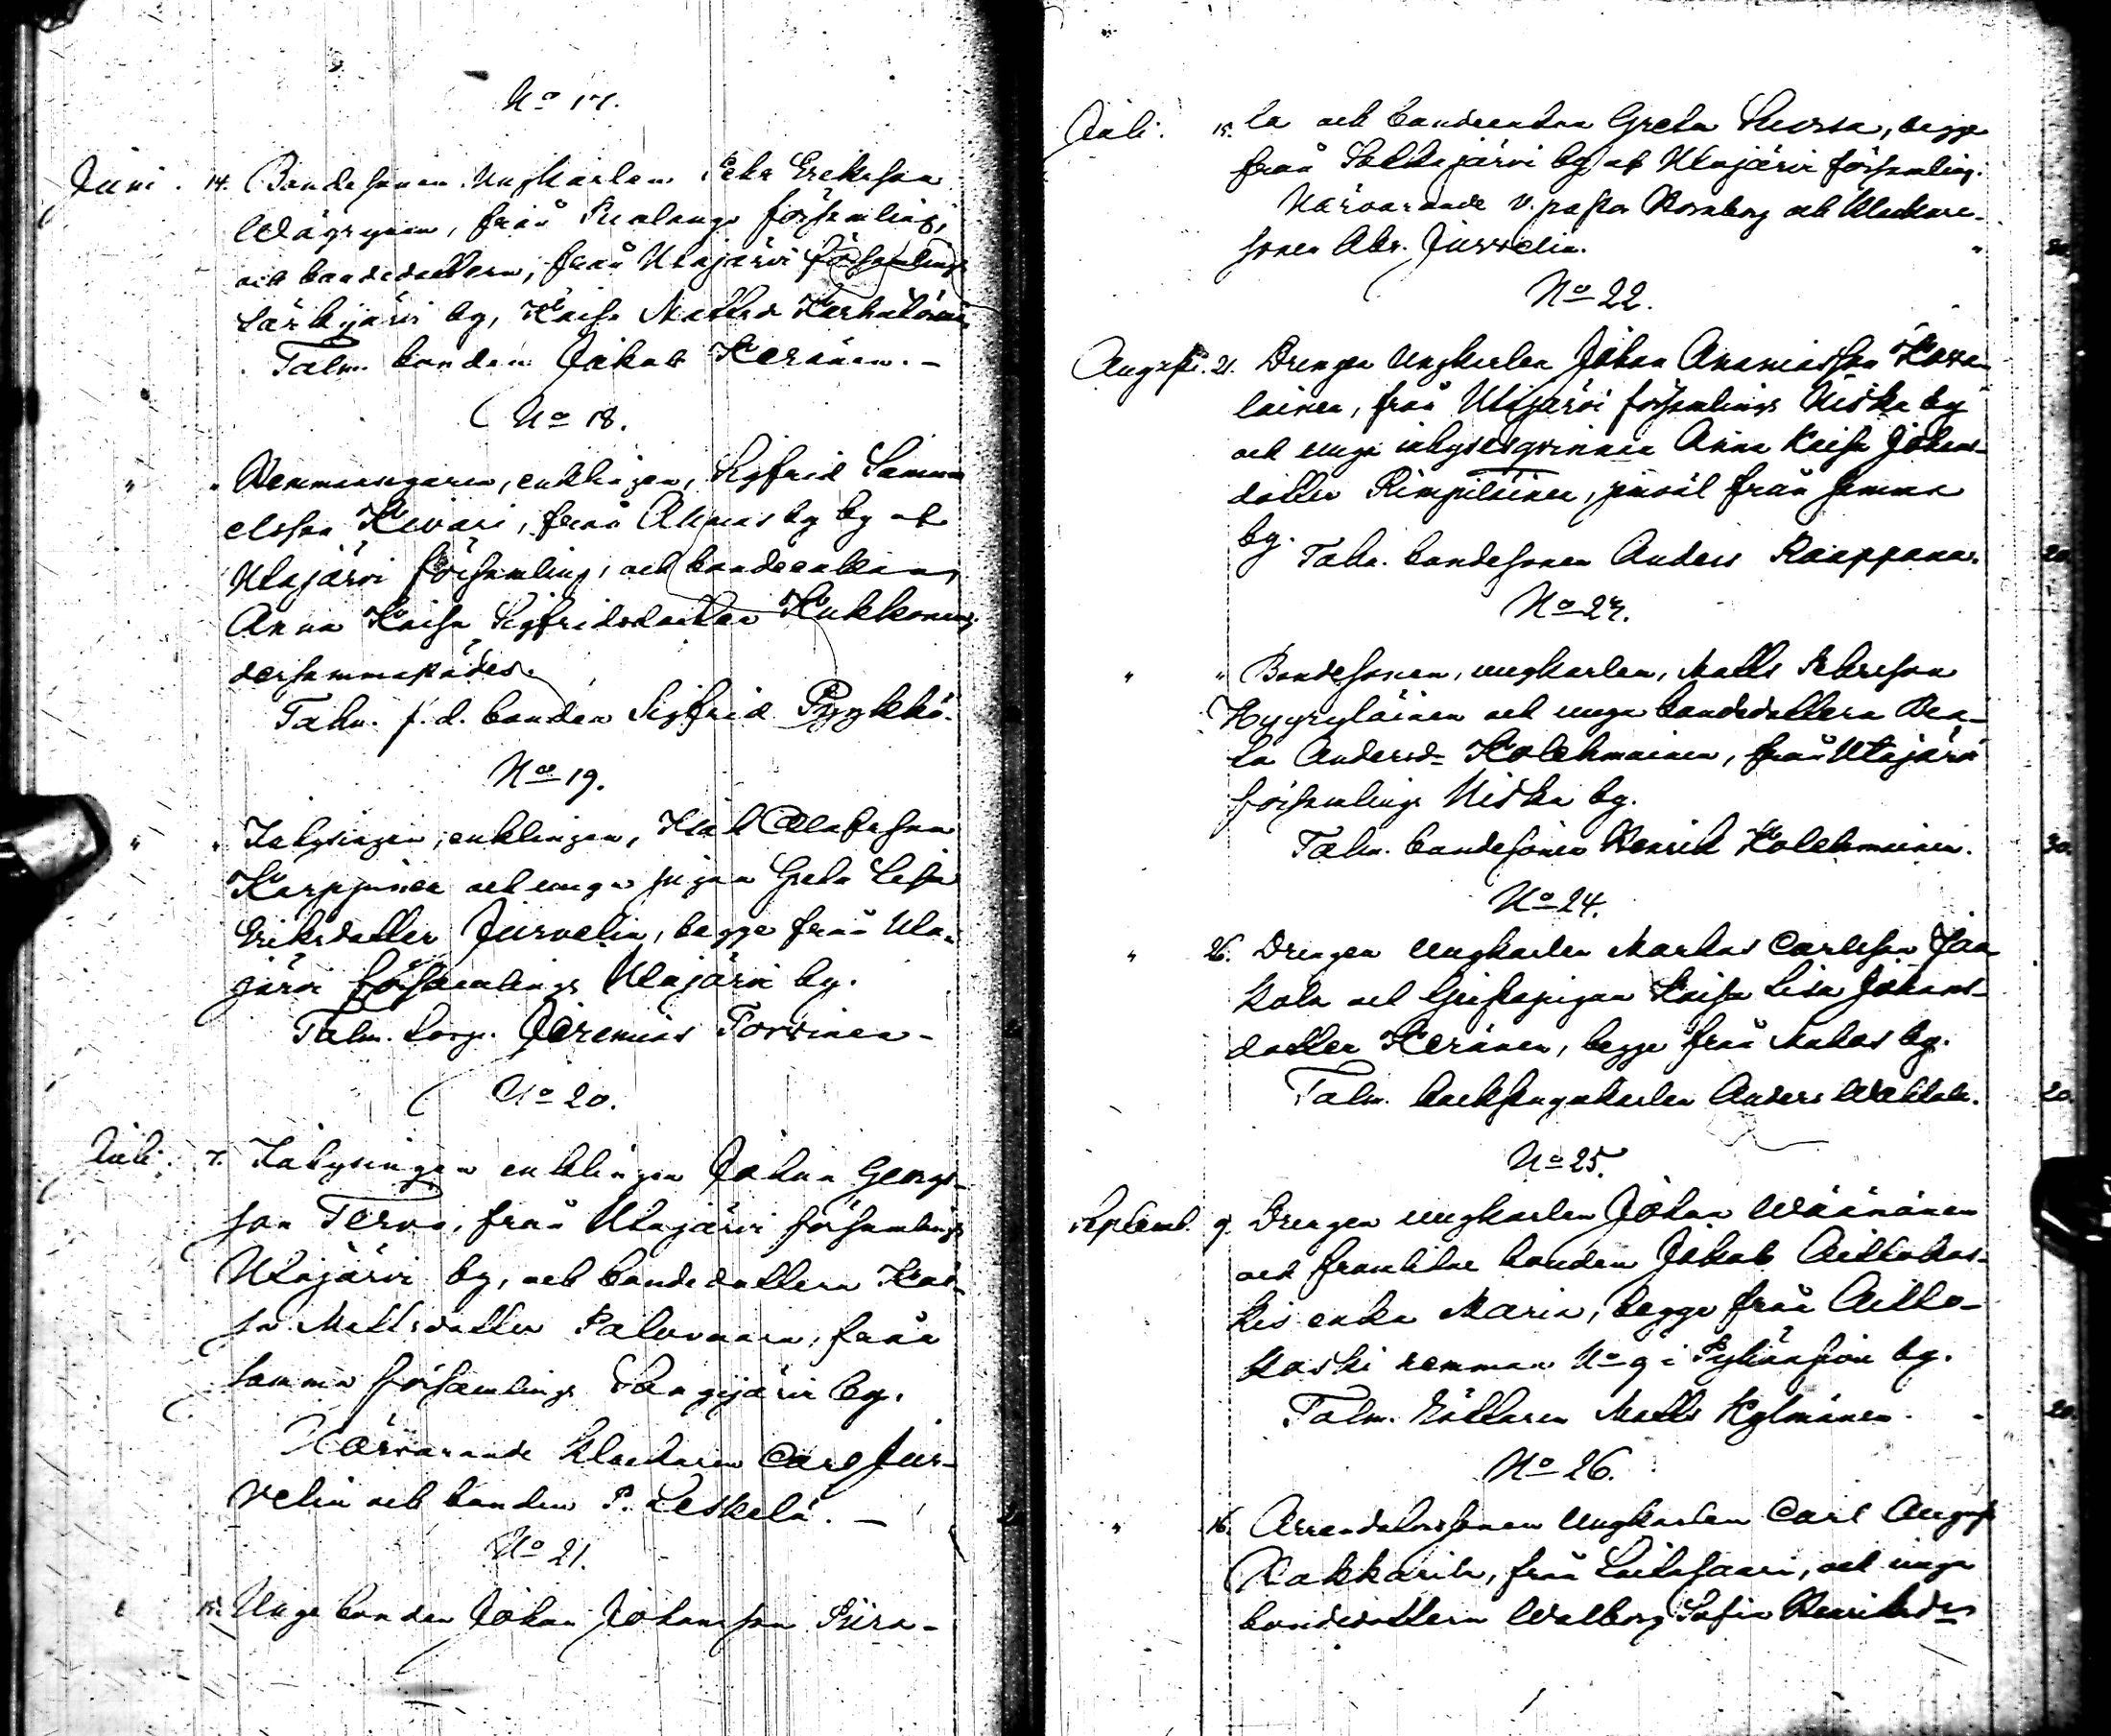 No 17.
Juni. 14. Bondesonen Ungkarlen Petr Eriksson
Wäyrynen, från Puolango församling,
och bondedottern, från Utajärvi församlings
Särkijärvi by, Kaisa Mattsd. Karhu
Talm. bonden Jakob Keränen. –
No 18.
" " Hemmansegaren, enklingen, Sigfrid Samu-
elsson Kivari, från Ahmas by by af
Utajärvi församling, och bondeenkan
Anna Kaisa Sigfridsdotter Kukkonen,
dersammastädes.
Talm. f.d. bonden Sigfrid Pyykkö.
No 19.
" " Inhysingen, enklingen, Isak Olofsson
Karppinen och unga pigan Greta Lisa
Eriksdotter Jurvelin, begge från Uta-
järvi församlings Utajärvi by.
Talm. Jeremias Torvinen –
No 20.
Juli. 7. Inhysingen enklingen Johan Georgs-
son Tervo, från Utajärvi församlings
Utajärvi by, och bondedottern Kai-
sa Mattsdotter Palovaara, från
samma församlings Sangijärvi by.
Närvarande klockaren Carl Jur-
velin och bonden P. Leskelä. –
No 21.
" 15. Unge bonden Johan Johansson Piira-
Juli. 15. la och bondeenkan Greta begge
från Sotkajärvi by af Utajärvi församling.
Närvarande v. pastor Kornborg och klockare-
sonen Abr. Jurvelin. " 20.
No 22.
August. 21. Drengen Ungkarlen Johan Ananiasson Kova-
lainen, från Utajärvi församlings Niska by
och unga inhysesqvinnan Anna Kaisa Johans-
dotter Rimpiläinen, jemväl från samma
by.
Talm. bondesonen Anders Kauppana. 20.
No 23.
" " Bondesonen, ungkarlen, Matts Petersson
Hyyryläinen och unga bondedottern Bea-
ta Andersd= Kolehmainen, från Utajärvi
församlings Niska by.
Talm. bondesonen Henrik Kolehmainen. 30.
No 24.
" 26. Drengen Ungkarlen Markus Carlsson Jaa-
kola och Gästepigan Kaisa Lisa Johans-
dotter Keränen, begge från Muhos by.
Talm. backstugukarlen Anders 20.
No 25.
Septemb. 9. Drengen ungkarlen Johan Wäänänen
och framlidne bonden Jakob Aittokos-
kis enka Maria, begge från Aitto-
koski hemman No 9 i Pyhänsivu by.
Talm. Matts Kylmänen. " 20.
No 26.
" 16. Arrendatorssonen Ungkarlen Carl August
Kakkarila, från Laitasaari, och unga
bondedottern Walborg Sofia Henriksd=r